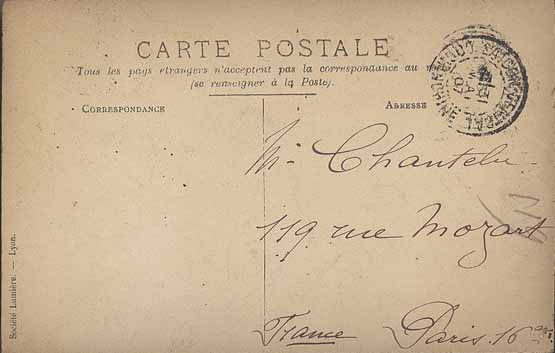 CARTE POSTALE
Tous les pays étrangers n'acceptent pas la correspondance au
(se renseigner à la Poste).
CORRESPONDANCE
ADRESSE
M. Chantelu
119 rue Mozart
France Paris. 16
Société Lumière. — Lyon.